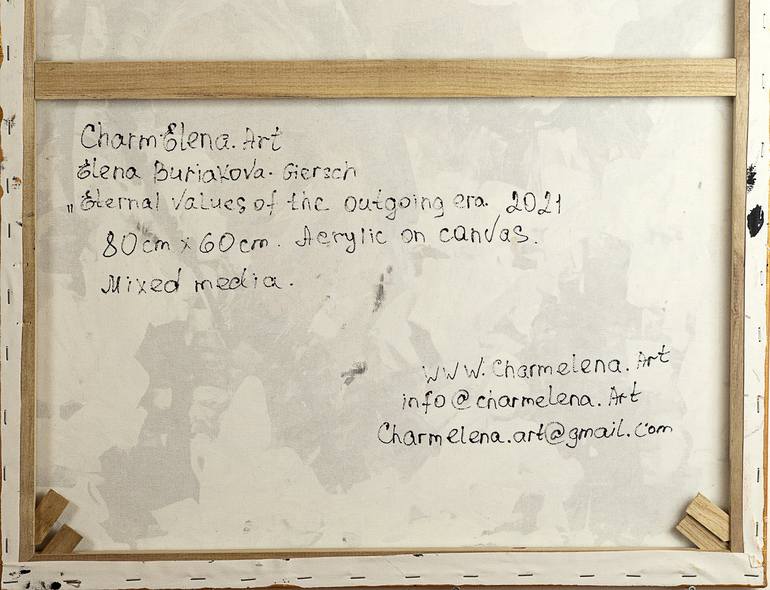 CharmElena. Art
Elena Buriakova. Giersch
„Eternal values of the outgoing era. 2021
80cm x 60cm. Acrylic on canvas.
Mixed media.
www.charmelena.Art
info@charmelena.Art
Charmelena.art@gmail.com